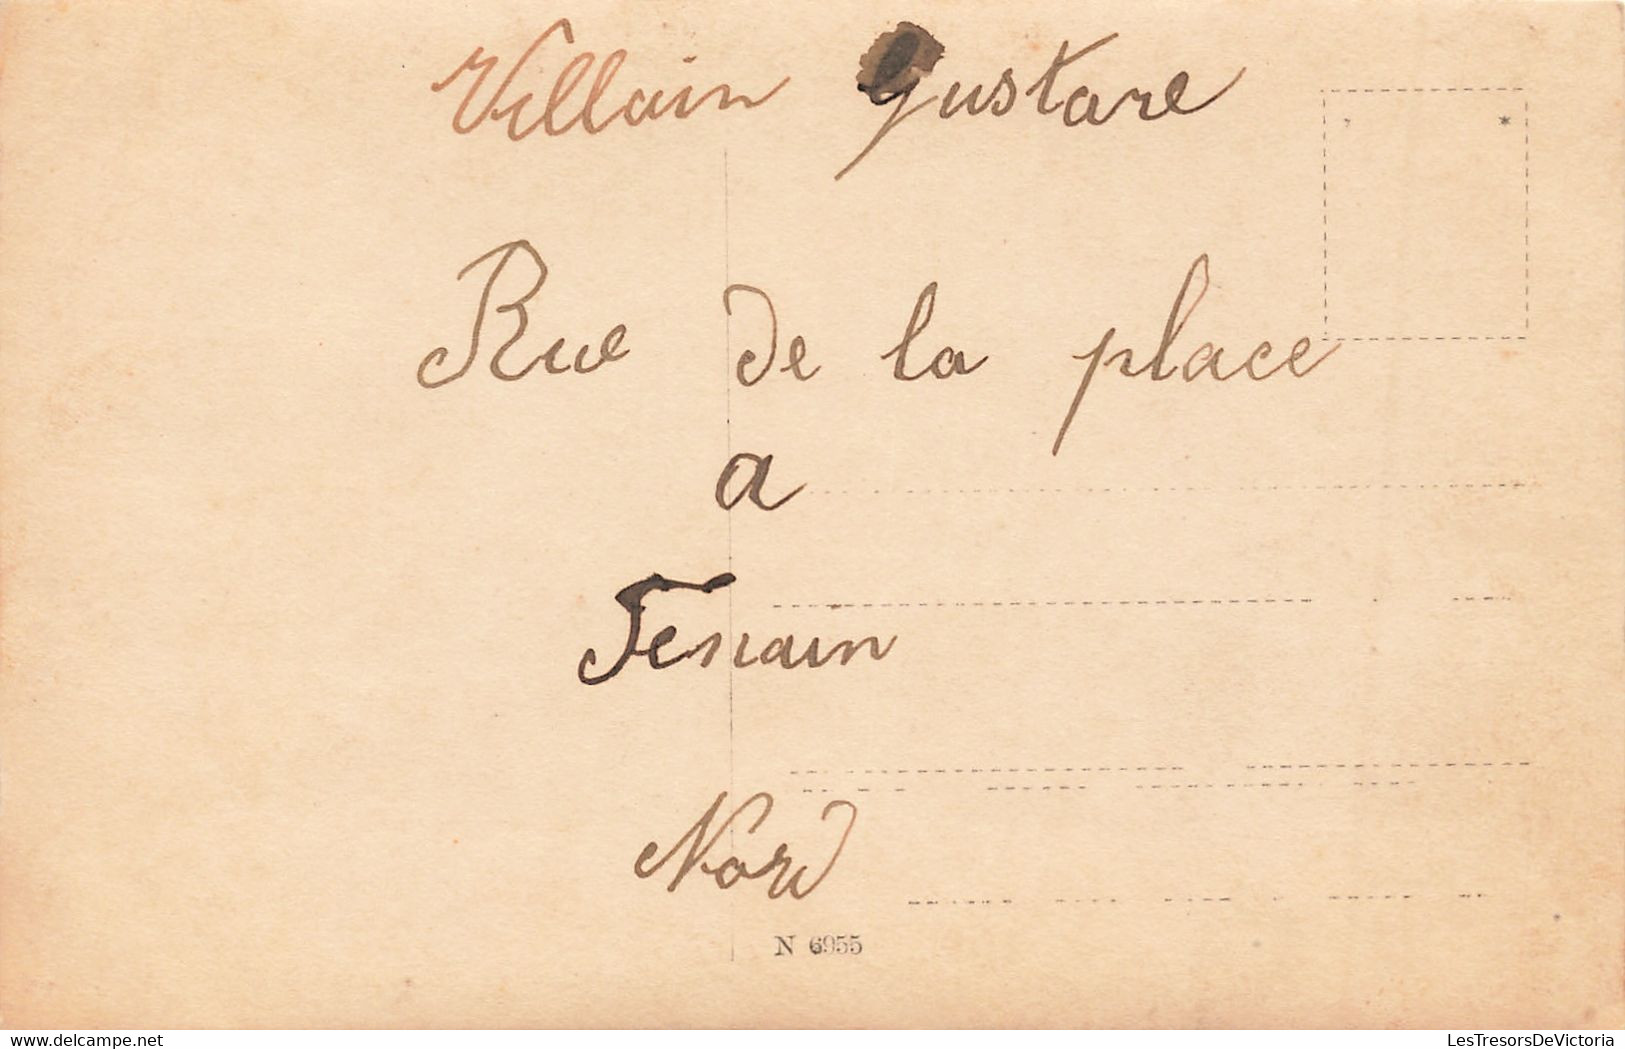 Villain Gustave
Rue de la place
a
Fenain
Nord
N 6955
LesTresorsDeVictoria
delcampe.net